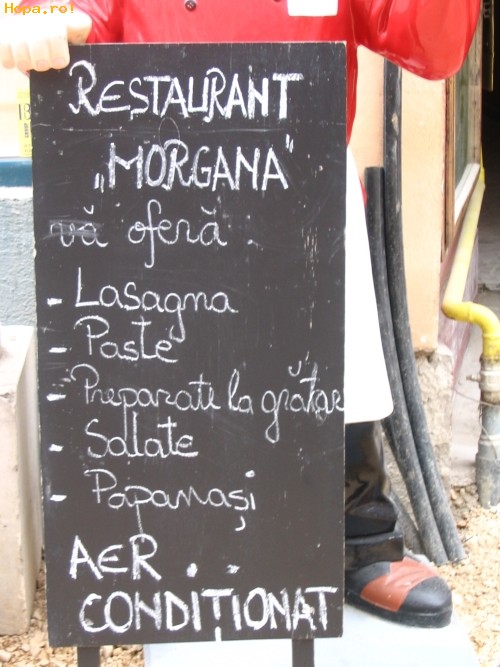 Hopa.ro!
RESTAURANT
„MORGANA”
vă oferă:
- Lasagna
- Paste
- Preparate la grătar
- Sallate
- Papanași
AER
CONDIȚIONAT